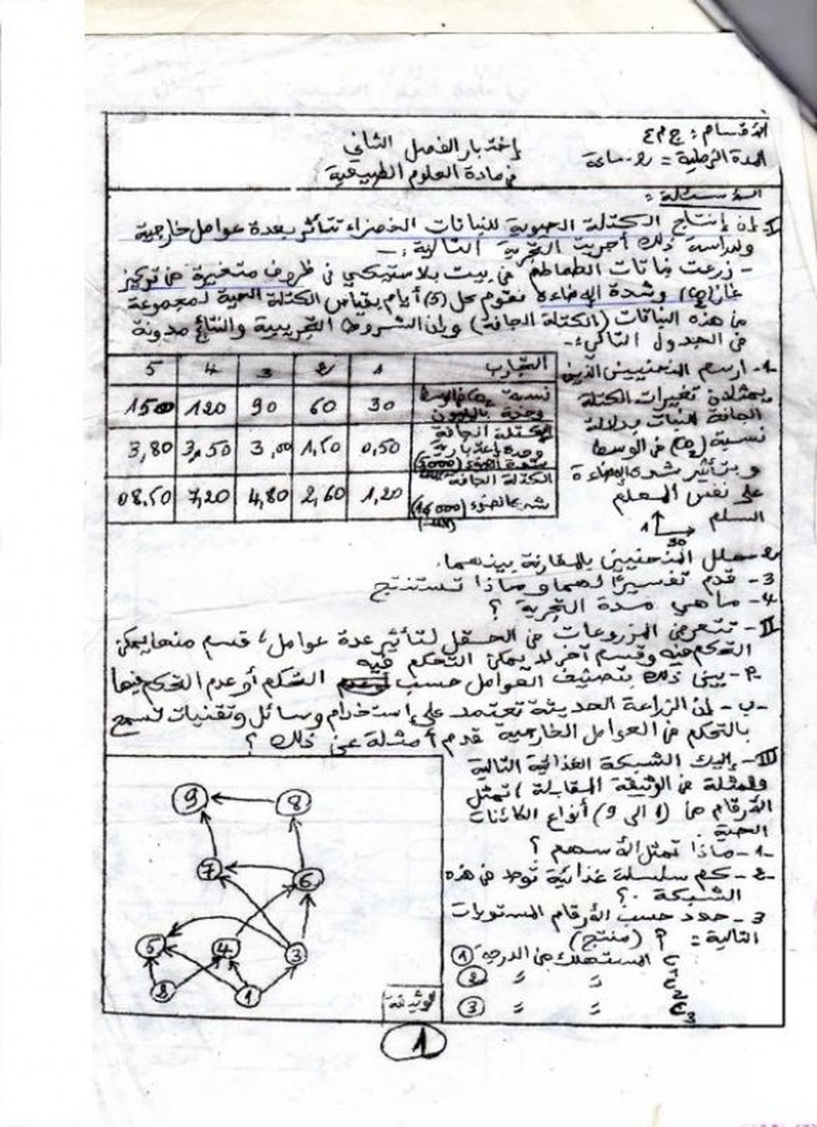 الأقسام: ج م ع
المدة الزمنية = 2 ساعة
إختبار الفصل الثاني
في مادة العلوم الطبيعية
الأسئلة:
I- إن إنتاج الكتلة الحيوية للنباتات الخضراء تتأثر بعدة عوامل خارجية
ولدراسة ذلك أجريت التجربة التالية:
- زرعت نباتات الطماطم في بيت بلاستيكي في ظروف متغيرة من تركيز
غاز (CO2) وشدة الإضاءة نقوم بكل (5) أيام بقياس الكتلة الحية لمجموعة
من هذه النباتات (الكتلة الجافة) وإن الشروط التجريبية والنتائج مدونة
في الجدول التالي:
التجارب 1 2 3 4 5
نسبة CO2 في الوسط وحدة بالمليون 30 60 90 120 150
الكتلة الجافة وحدة إعتبارية شدة الضوء (5000) 0,50 1,50 3,00 3,50 3,80
الكتلة الجافة شدة الضوء (16000) 1,20 2,60 4,80 7,20 08.50
1- ارسم المنحنيين الذين
يمثلان تغيرات الكتلة
الجافة للنبات بدلالة
نسبة (CO2) في الوسط
وبتأثير شدة الإضاءة
على نفس المعلم
السلم 1 30
2- حلل المنحنيين بالمقارنة بينهما.
3- قدم تفسيرًا لهما وماذا تستنتج
4- ما هي مدة التجربة ؟
II- تتعرض المزروعات في الحقل لتأثير عدة عوامل، قسم منها يمكن
التحكم فيه وقسم آخر لا يمكن التحكم فيه
أ- بين ذلك بتصنيف العوامل حسب التحكم أو عدم التحكم فيها
ب- إن الزراعة الحديثة تعتمد على إستخدام وسائل وتقنيات تسمح
بالتحكم في العوامل الخارجية قدم أمثلة عن ذلك ؟
III- إليك الشبكة الغذائية التالية
والممثلة في الوثيقة المقابلة، تمثل
الأرقام من (1 إلى 9) أنواع الكائنات
الحية
1- ماذا تمثل الأسهم ؟
2- كم سلسلة غذائية توجد في هذه
الشبكة ؟
3- حدد حسب الأرقام المستويات
التالية: م (منتج)
المستهلك من الدرجة 1
م2 " " 2
م3 " " 3
9 8
7 6
5 4 3
2 1
الوثيقة
1